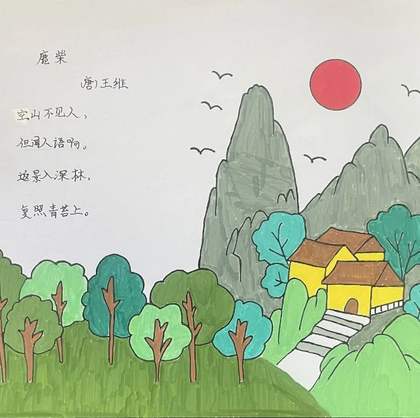 鹿柴
唐)王维
空山不见人，
但闻人语响。
返景入深林，
复照青苔上。